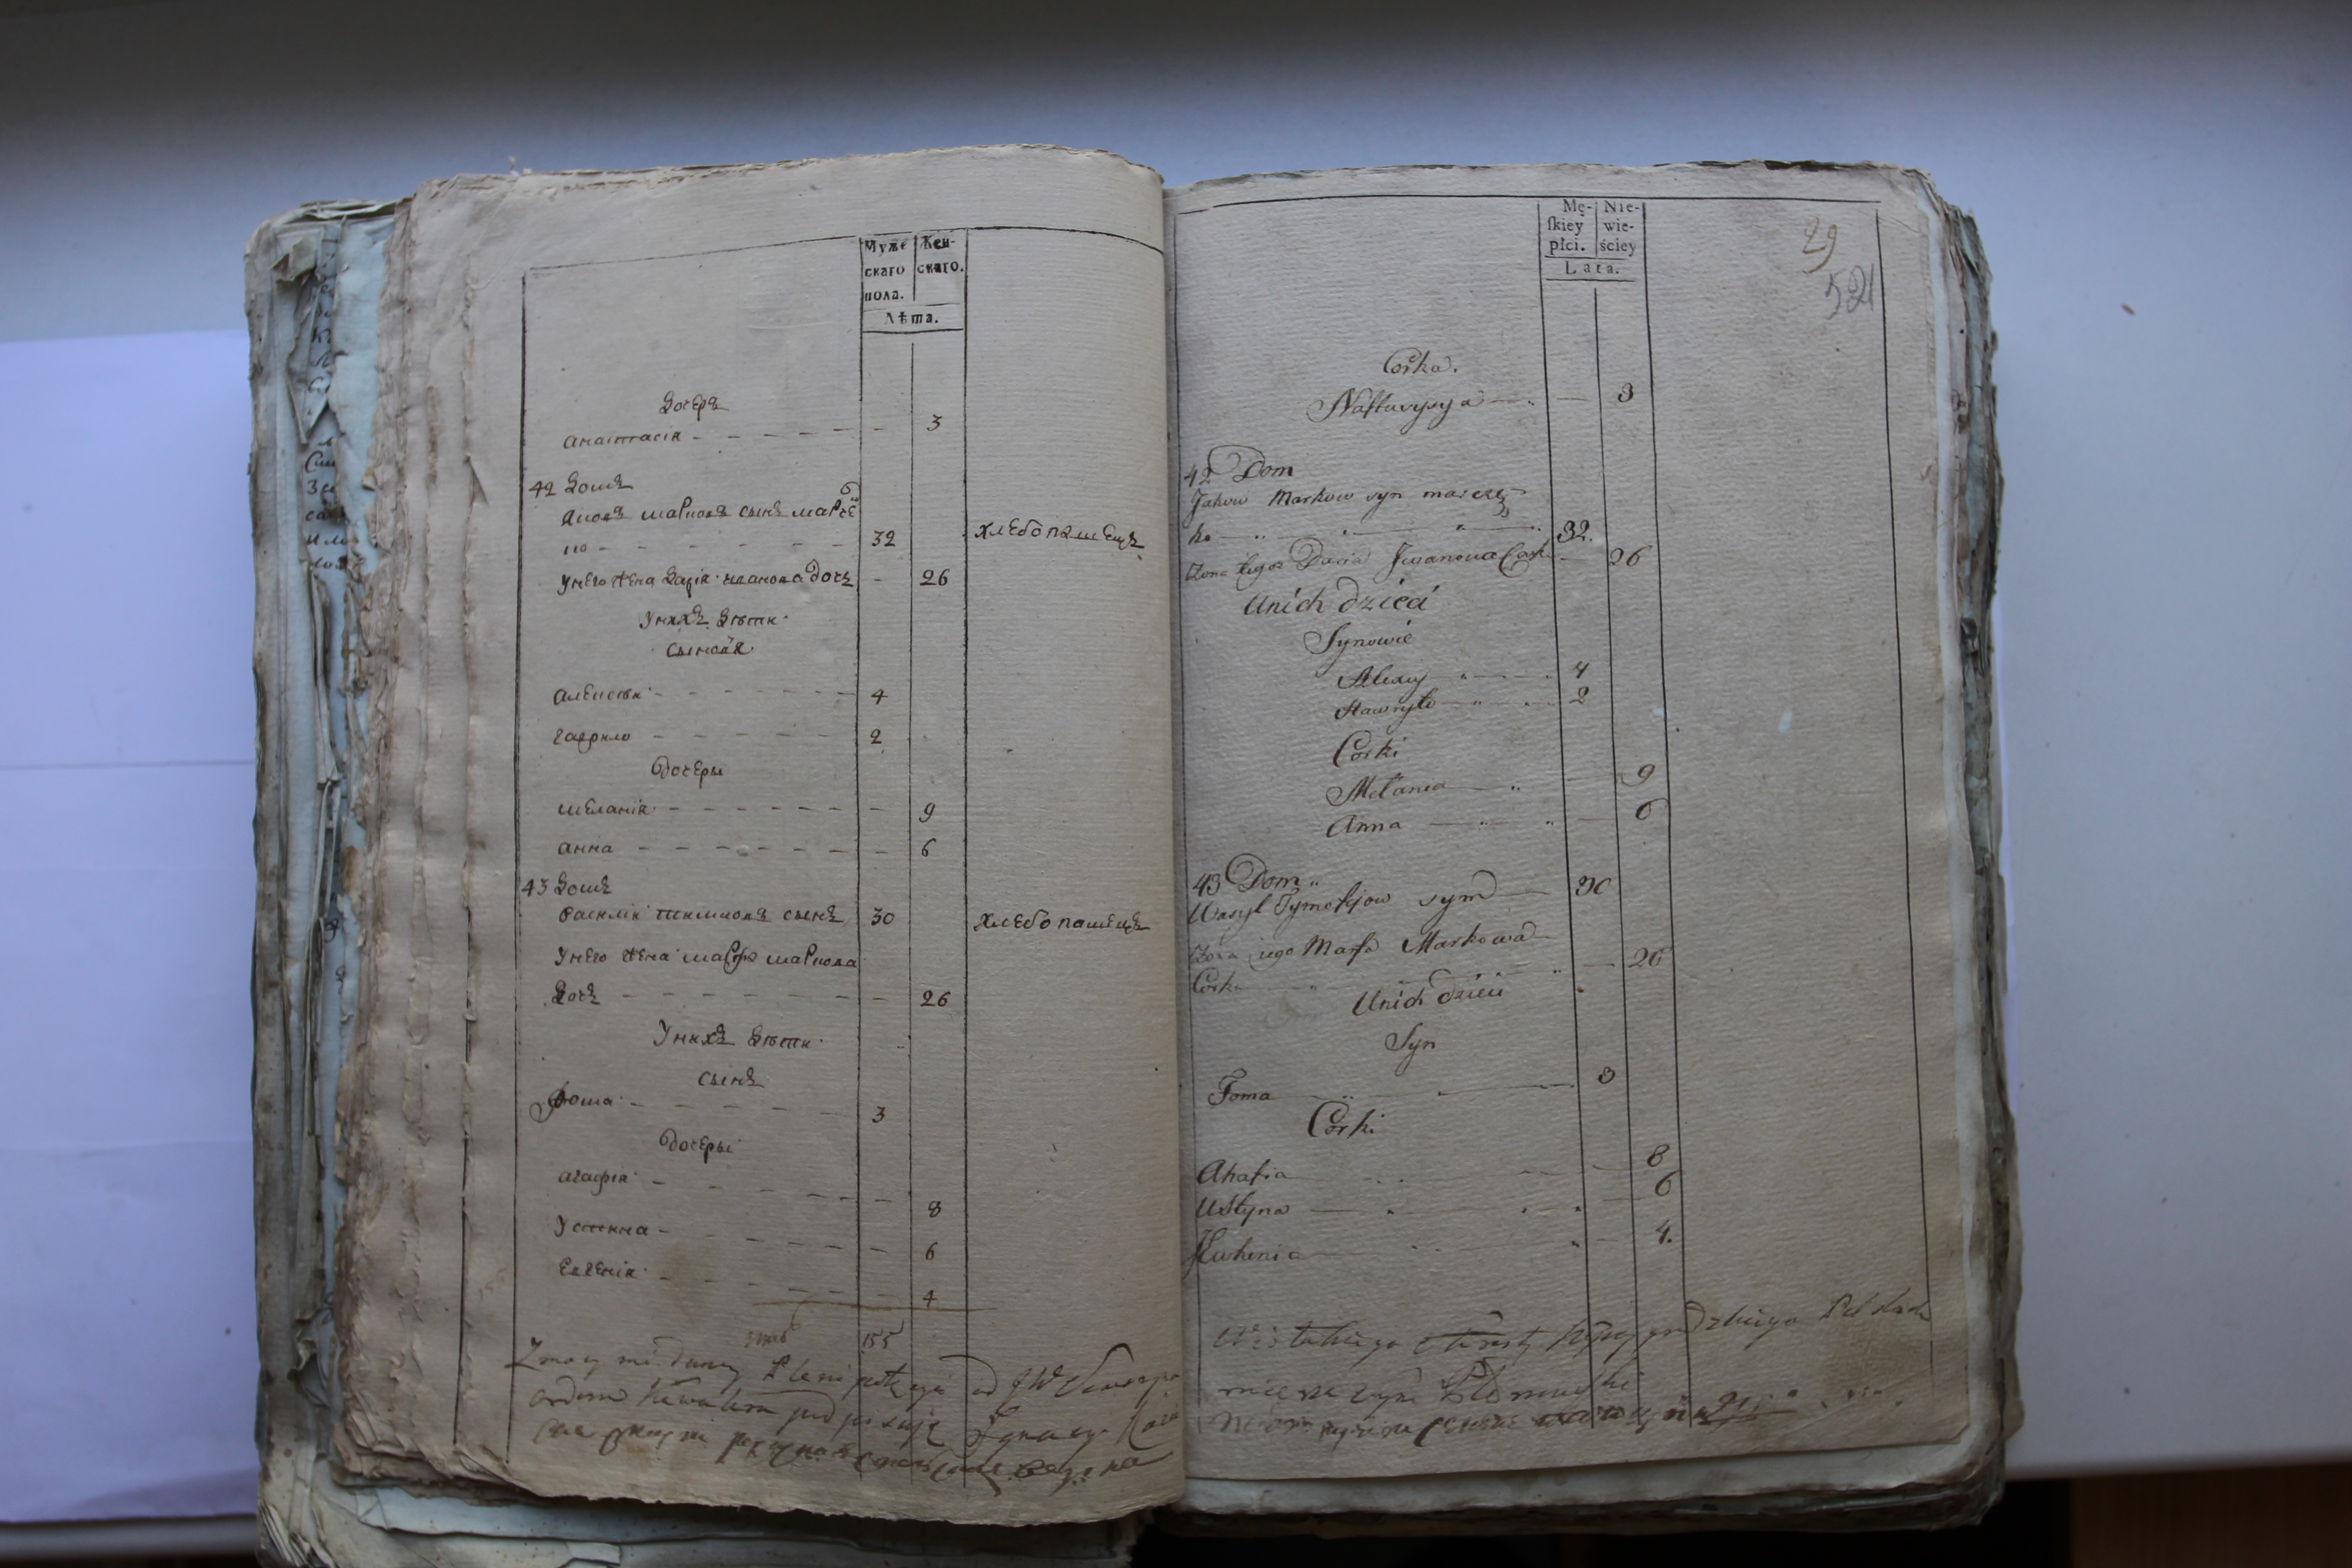 Муже
скаго
пола.
Жен-
скаго.
Лѣта.
Дочеръ
анастасіѧ - - - - - 3
42 Домъ
Яковъ марковъ сынъ марче
нко - - - - - 32 хлебопашецъ
Унего жена Даріѧ ивановадочъ - 26
Унихъ Дѣти
сыновѧ
алексѣи - - - - - 4
гаврило - - - - - 2
дочеры
меланіѧ - - - - - 9
анна - - - - - 6
43 Домъ
василіи тимиковъ сынъ 30 хлебопашецъ
Унего жена марфа маркова
Дочъ - - - - - 26
Унихъ Дѣти
сынъ
фома - - - - - 3
дочеры
агафіѧ - - - - - 8
Устина - - - - - 6
Евгеніѧ - - - - - 4
155
Z mocy mi daney Plenipotęcyi od JW
orderu Kawalera podpisuję Ignacy
Mę-
skiey
płci.
Nie-
wie-
ściey
Lata.
29
521
Corka.
Nastazysya 3
42 Dom
Jakow Markow syn marcze
ko 32.
Zona Iego Daria Jwanowa Cork 26
Unich dzieci
Synowie
Alexiy 4
Hawryło 2
Corki
Mełania 9
Anna 6
43 Dom
Wasyl Tymofijow syn 30
Zona iego Marfa Markowa
Corka 26
Unich dzieci
Syn
Foma 3
Corki
Ahafia 8
Ustyna 6
Jewhenia 4.